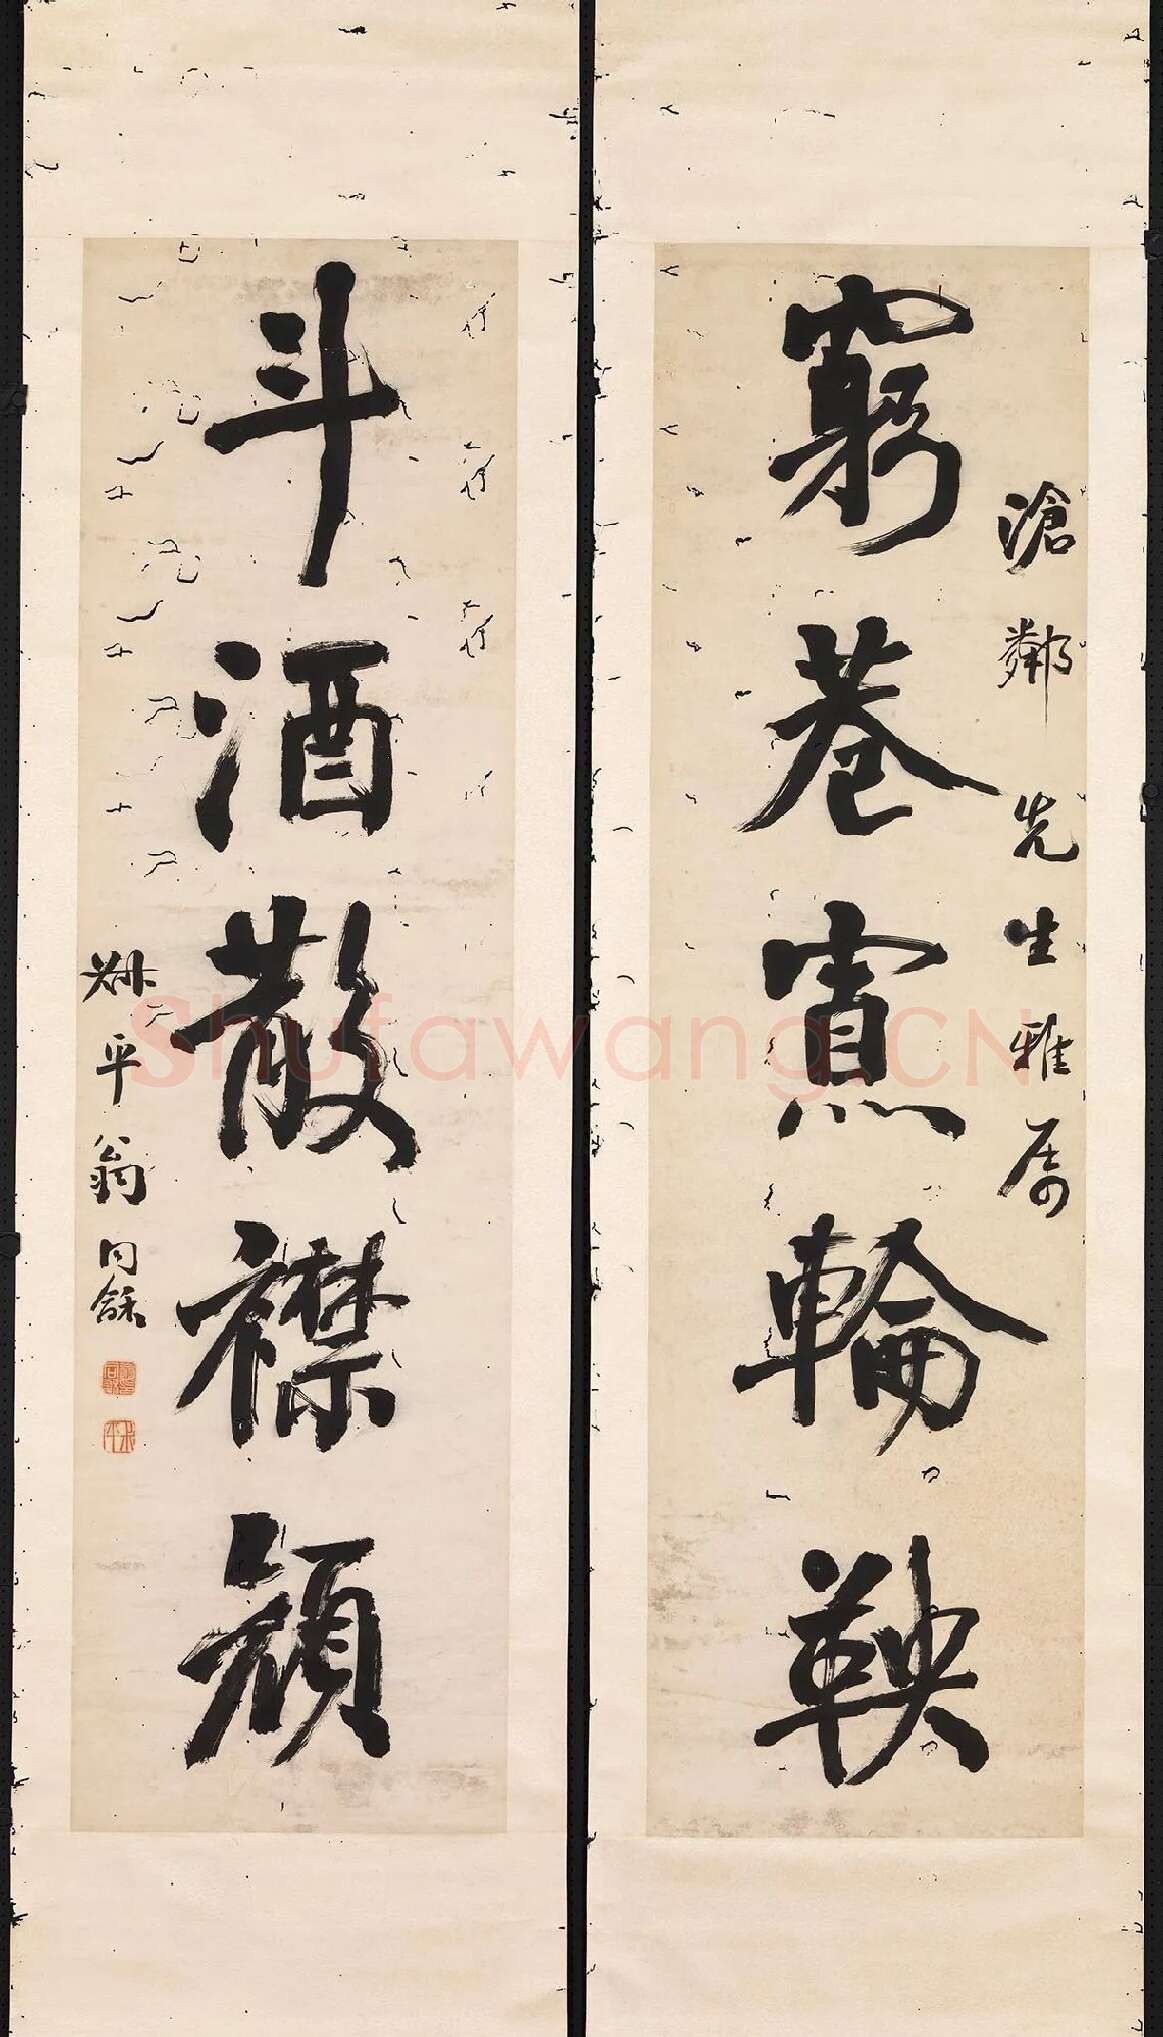 滄鄰先生雅属
窮巷寡輪鞅
斗酒散襟顏
叔平翁同龢
Shufawang.CN